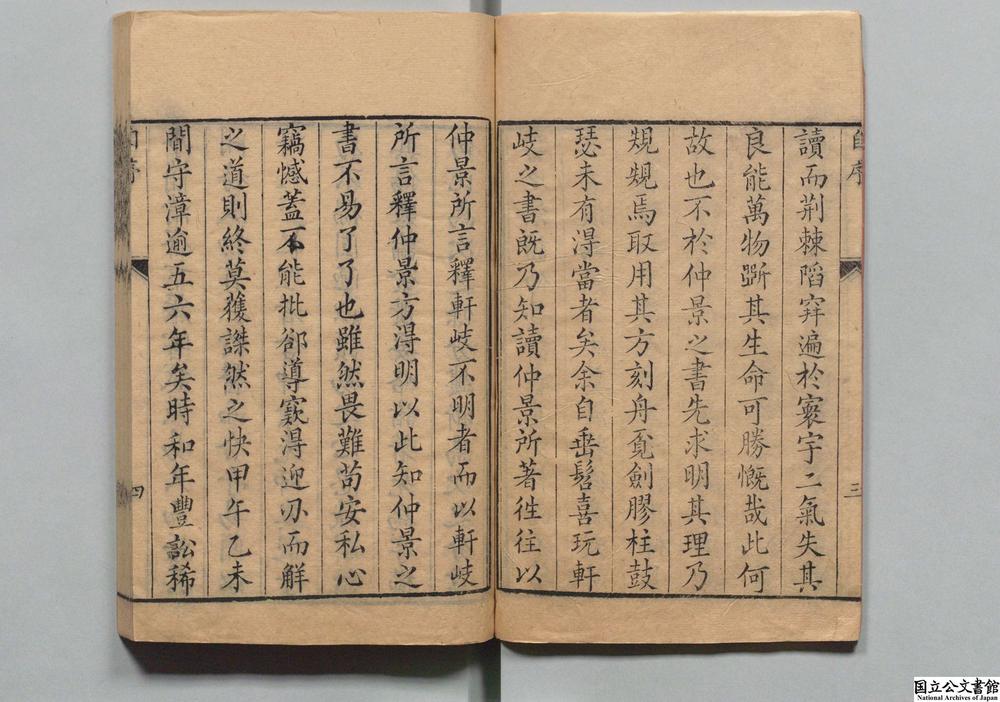 自序
三
讀而荆棘陷穽遍於寰宇二氣失其
良能萬物斲其生命可勝慨哉此何
故也不於仲景之書先求明其理乃
規規焉取用其方刻舟覓劍膠柱鼓
瑟未有得當者矣余自垂髫喜玩軒
岐之書既乃知讀仲景所著徃徃以
仲景所言釋軒岐不明者而以軒岐
所言釋仲景方得明以此知仲景之
書不易了了也雖然畏難苟安私心
竊憾蓋不能批郤導窾得迎刃而解
之道則終莫獲謋然之快甲午乙未
間守漳逾五六年矣時和年豐訟稀
自序
四
国立公文書館
National Archives of Japan